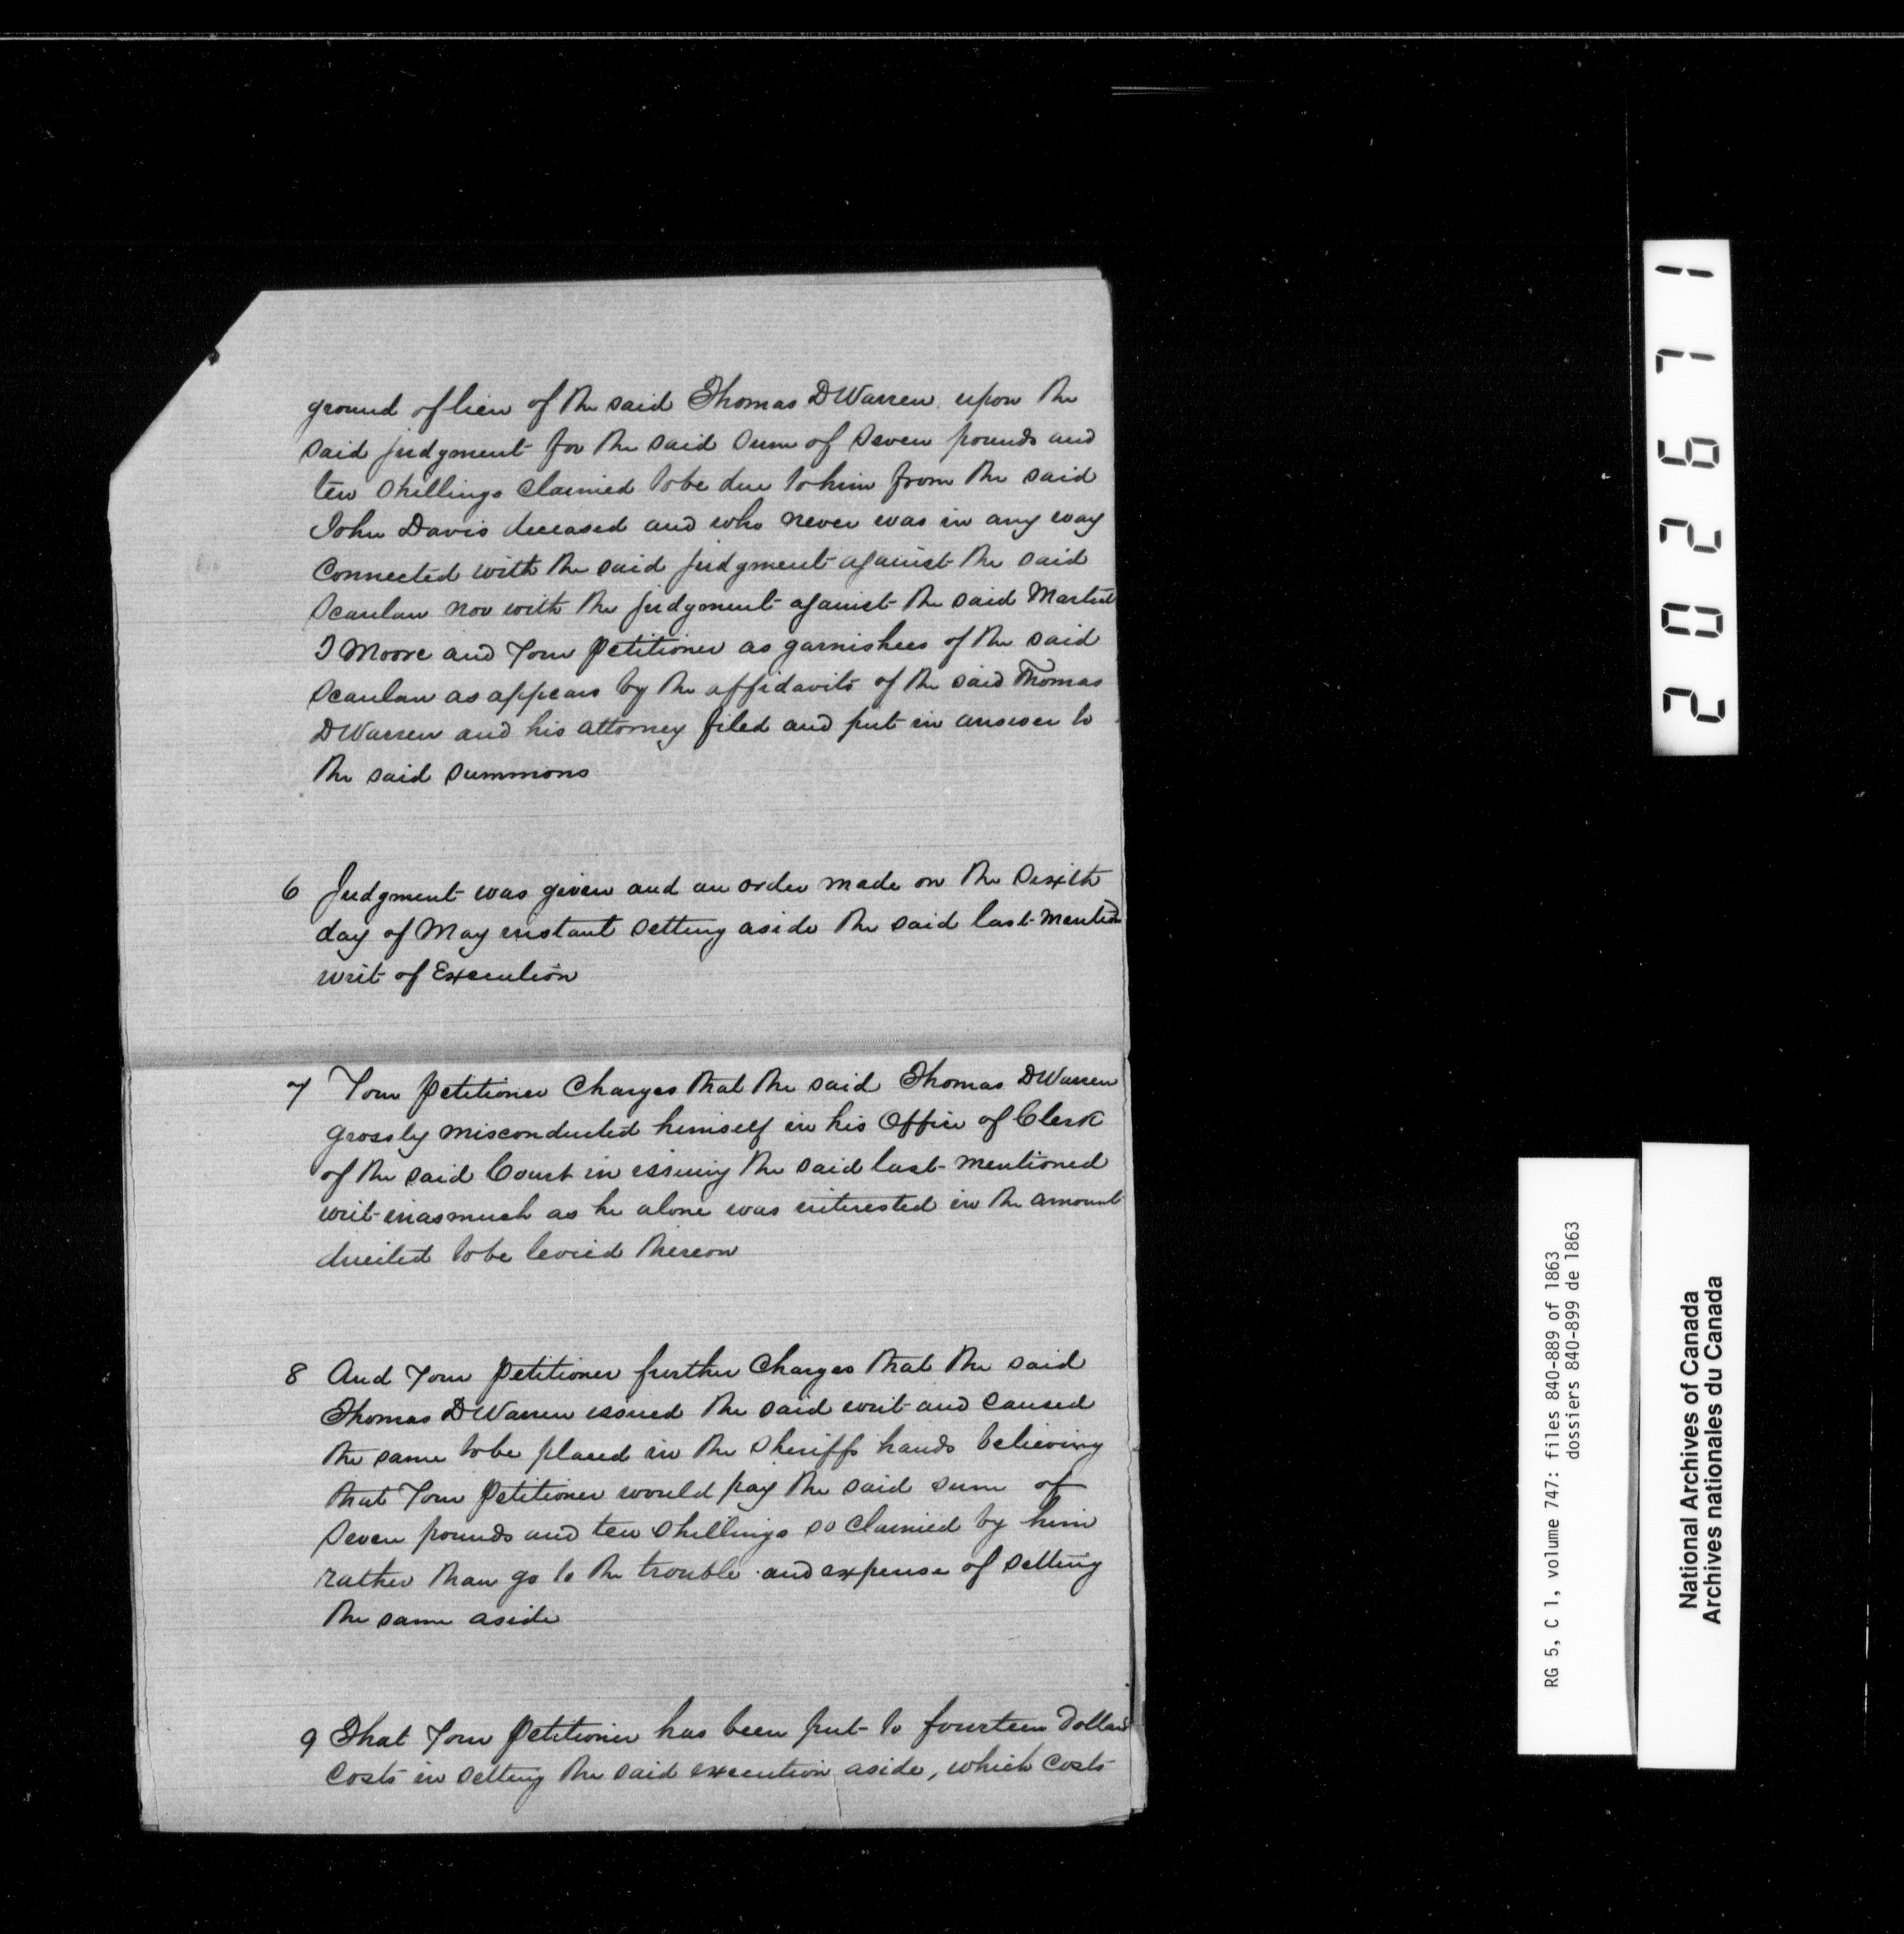 ground of lien of the said Thomas D Warren upon the
said judgment for the said sum of seven pounds and
ten shillings claimed to be due to him from the said
John Davis deceased and who never was in any way
connected with the said judgment against the said
Scanlan nor with the judgment against the said
J Moore and Your Petitioner as garnishees of the said
Scanlan as appears by the affidavits of the said Thomas
D Warren and his attorney filed and put in answer to
the said summons
6 Judgment was given and an order made on the Sixth
day of May instant setting aside the said last mention
writ of Execution
7 Your Petitioner Charges that the said Thomas D Warren
grossly misconducted himself in his Office of Clerk
of the said Court in issuing the said last mentioned
writ inasmuch as he alone was interested in the amount
directed to be levied thereon
8 And Your Petitioner further Charges that the said
Thomas D Warren issued the said writ and caused
the same to be placed in the Sheriffs hands believing
that Your Petitioner would pay the said sum of
seven pounds and ten shillings so claimed by him
rather than go to the trouble and expense of setting
the same aside
9 That Your Petitioner has been put to fourteen Dollars
costs in setting the said execution aside, which costs
202671
RG 5, C 1, volume 747: files 840-889 of 1863
dossiers 840-899 de 1863
National Archives of Canada
Archives nationales du Canada